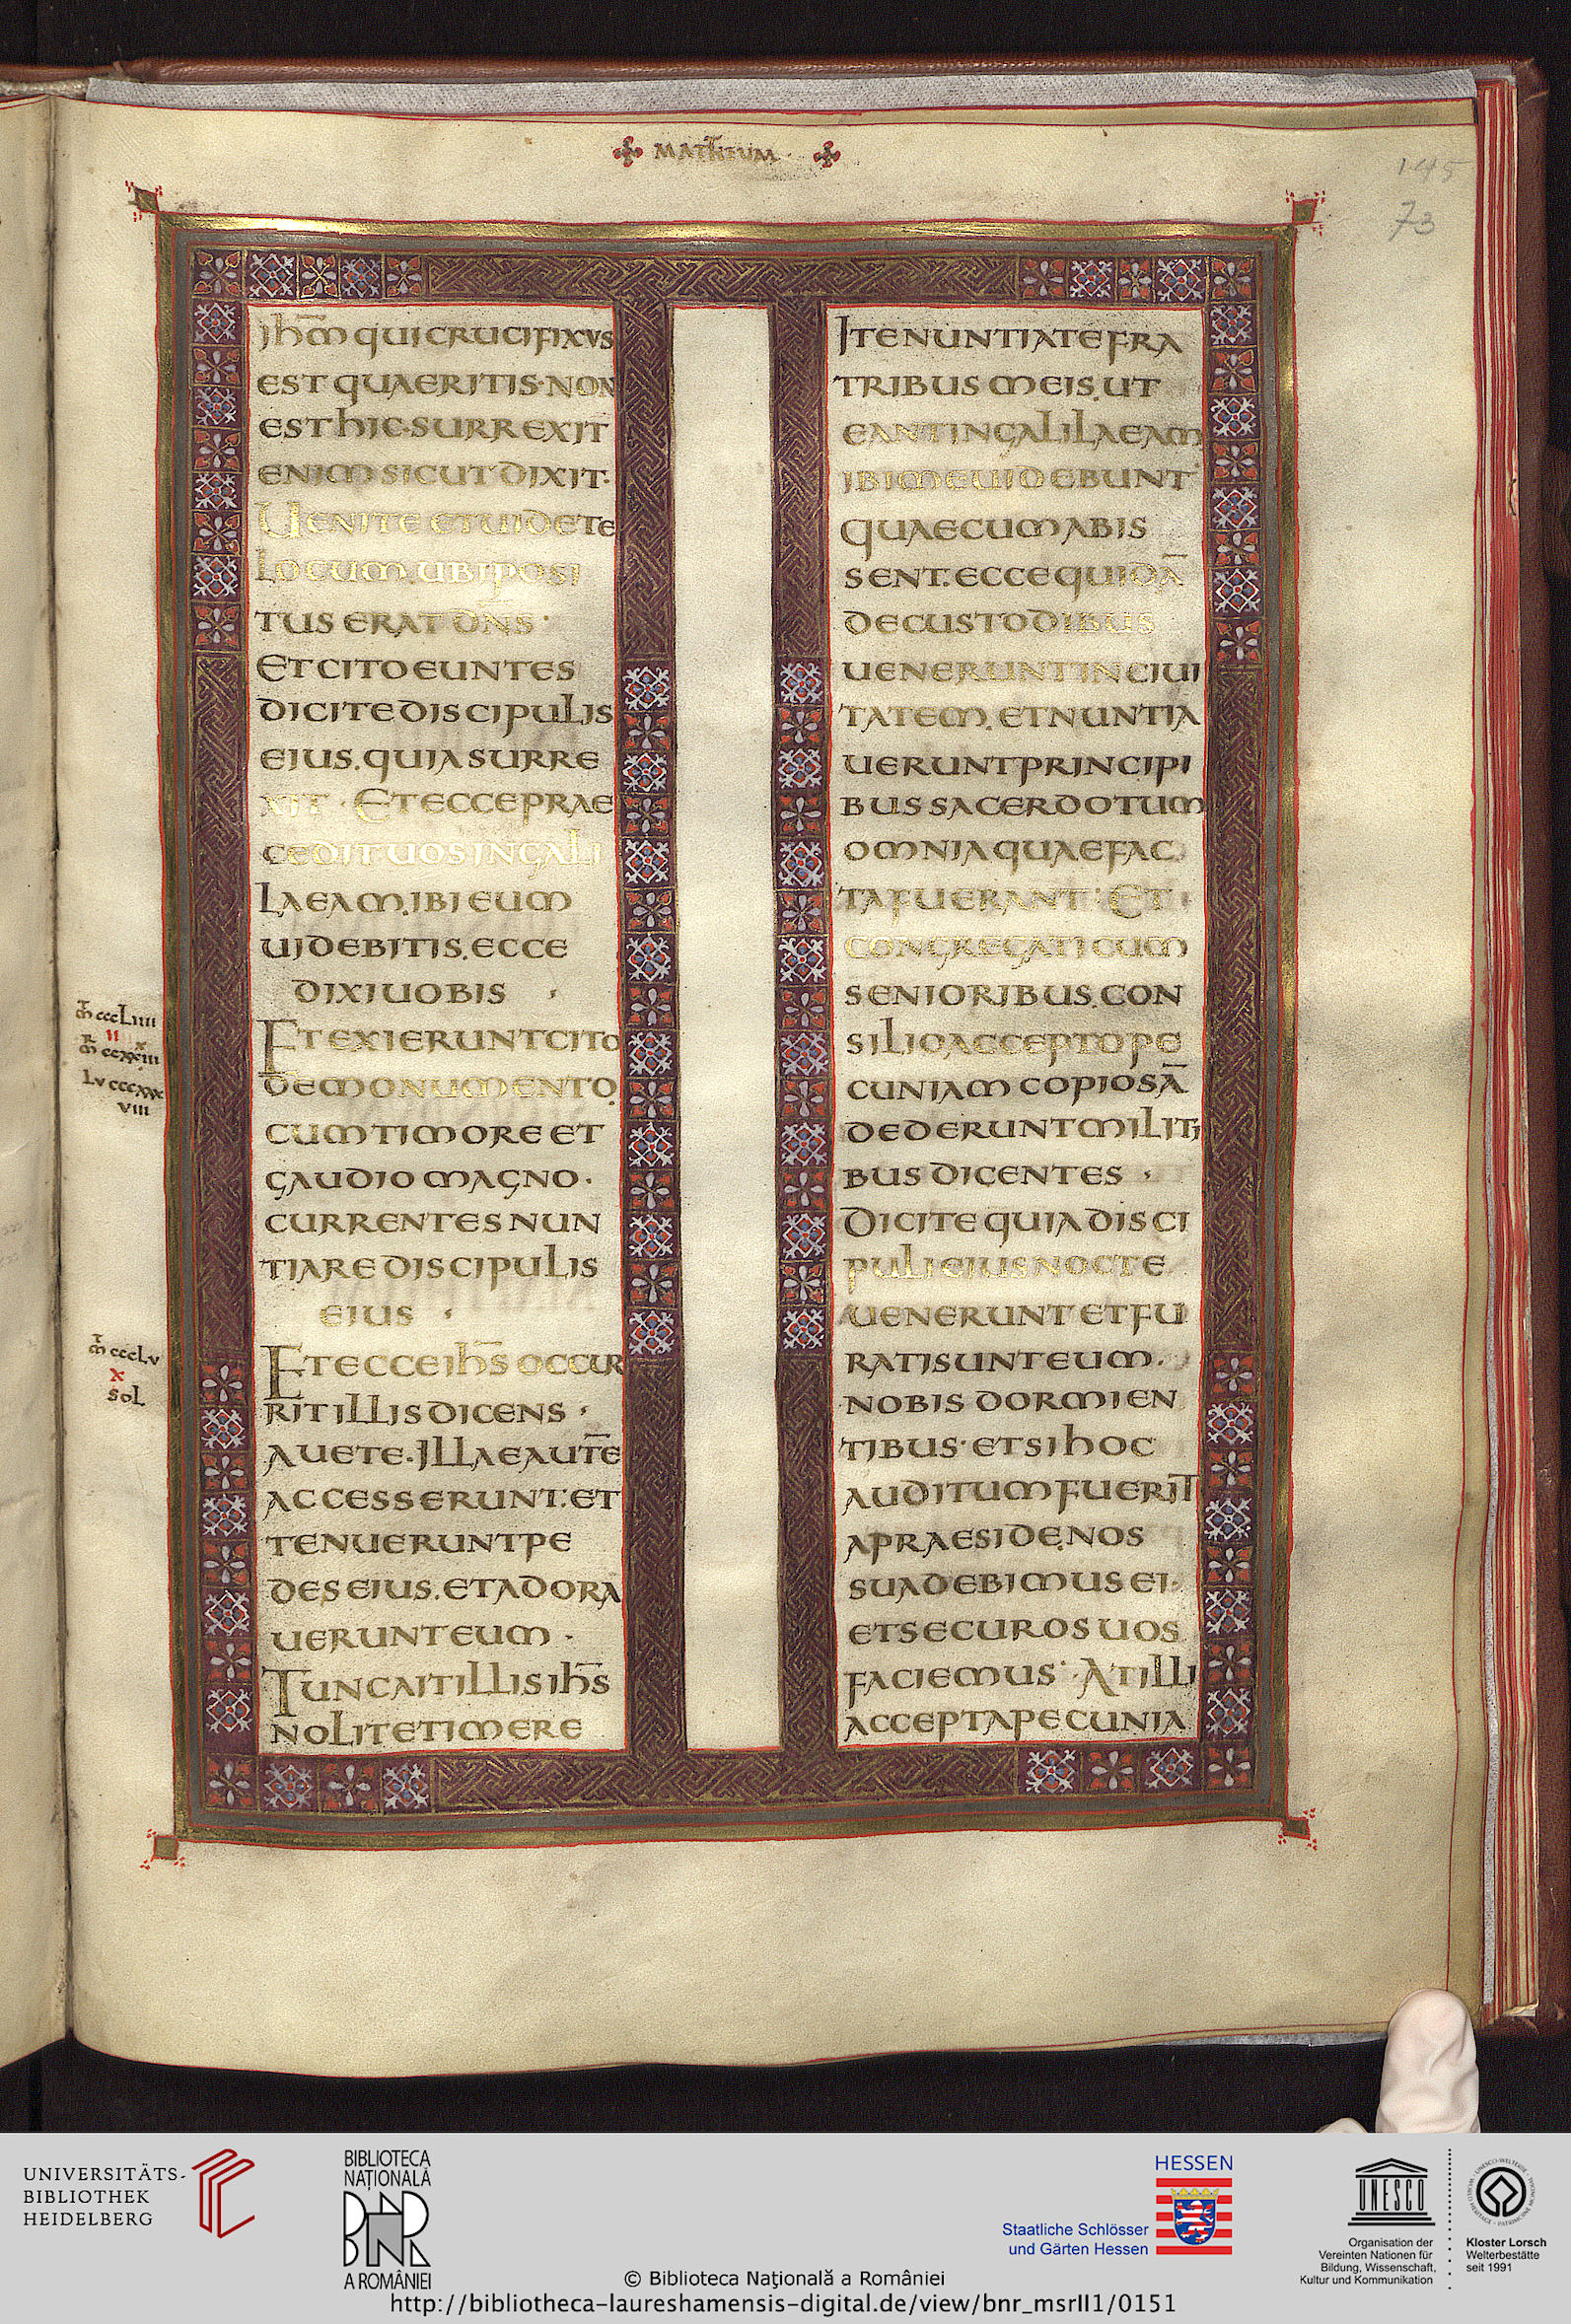 MATHEUM
145
73
IHM̅ QUI CRUCIFIXUS
EST QUAERITIS· NON
EST HIC· SURREXIT
ENIM SICUT DIXIT·
UENITE ET UIDETE
LOCUM UBI POSI
TUS ERAT DN̅S·
ET CITO EUNTES
DICITE DISCIPULIS
EIUS. QUIA SURRE
XIT· ET ECCE PRAE
CEDIT UOS IN GALI
LAEAM. IBI EUM
UIDEBITIS. ECCE
DIXI UOBIS·
ET EXIERUNT CITO
DE MONUMENTO.
CUM TIMORE ET
GAUDIO MAGNO·
CURRENTES NUN
TIARE DISCIPULIS
EIUS·
ET ECCE IHS̅ OCCUR
RIT ILLIS DICENS·
AUETE· ILLAE AUTE̅
ACCESSERUNT. ET
TENUERUNT PE
DES EIUS. ET ADORA
UERUNT EUM·
TUNC AIT ILLIS IHS̅
NOLITE TIMERE
ITE NUNTIATE FRA
TRIBUS MEIS. UT
EANT IN GALILAEAM
IBI ME UIDEBUNT·
QUAE CUM ABIS
SENT. ECCE QUIDA̅
DE CUSTODIBUS
UENERUNT IN CIUI
TATEM. ET NUNTIA
UERUNT PRINCIPI
BUS SACERDOTUM
OMNIA QUAE FAC
TA FUERANT· ET
CONGREGATI CUM
SENIORIBUS. CON
SILIO ACCEPTO PE
CUNIAM COPIOSA̅
DEDERUNT MILITI
BUS DICENTES·
DICITE QUIA DISCI
PULI EIUS NOCTE
UENERUNT ET FU
RATI SUNT EUM·
NOBIS DORMIEN
TIBUS· ET SI HOC
AUDITUM FUERIT
A PRAESIDE. NOS
SUADEBIMUS EI·
ET SECUROS UOS
FACIEMUS· AT ILLI
ACCEPTA PECUNIA
m̅ cccLiiii
ii
m̅r ccxxiii
x
Lv cccxxx
viii
m̅ cccLv
x
soL
UNIVERSITÄTS-
BIBLIOTHEK
HEIDELBERG
BIBLIOTECA
NAȚIONALĂ
BNR
A ROMÂNIEI
© Biblioteca Naţională a României
http://bibliotheca-laureshamensis-digital.de/view/bnr_msrII1/0151
HESSEN
Staatliche Schlösser
und Gärten Hessen
UNESCO
Organisation der
Vereinten Nationen für
Bildung, Wissenschaft,
Kultur und Kommunikation
Kloster Lorsch
Welterbestätte
seit 1991